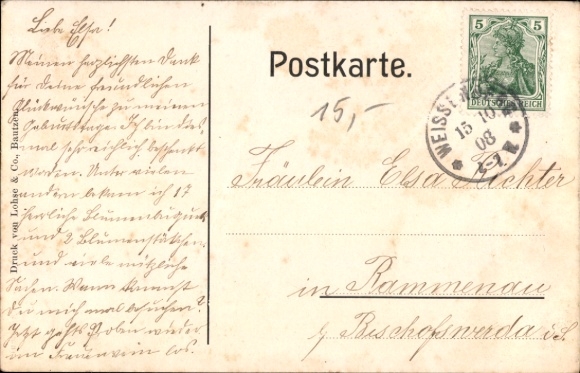 Liebe Elsa!
Meinen herzlichsten Dank
für Deine freundlichen
Glückwünsche zu meinem
Geburtstage. Ich bin dies-
mal sehr reichlich beschenkt
worden. Unter vielen
andern bekam ich 17
herrliche Blumen
und 2 Blumenstöckchen
und viele nützliche
Sachen. Wann kommst
Du mich mal besuchen?
Jetzt gehts wieder
im los.
Druck von Lohse & Co., Bautzen.
Postkarte.
15,-
5 5
DEUTSCHES REICH
15 10
08
Fräulein Elsa Richter
in Rammenau
b/ Bischofswerda i. S.